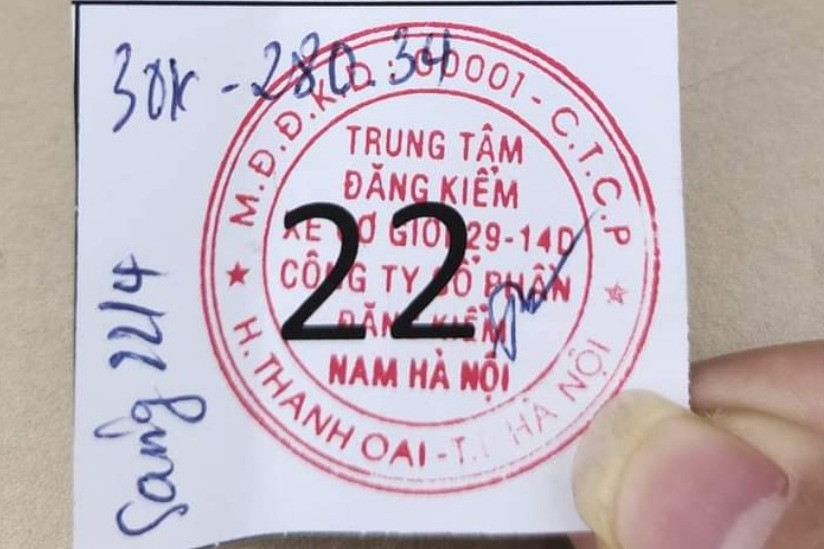 30K-280.34
M.Đ.Đ.K.D: 00001-C.T.C.P
TRUNG TÂM
ĐĂNG KIỂM
XE CƠ GIỚI 29-14D
CÔNG TY CỔ PHẦN
ĐĂNG KIỂM
NAM HÀ NỘI
22
H. THANH OAI-T.P HÀ NỘI
Sáng 22/4